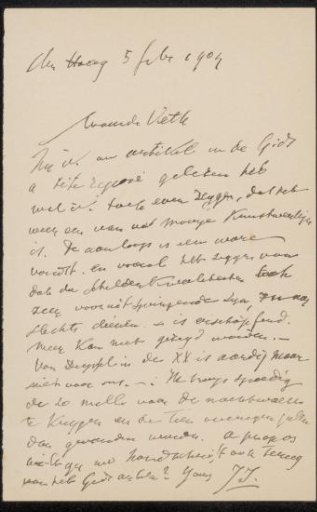 Den Haag 5 febr 1904
Waarde Veth
Nu ik uw artikel in de Gids
a tête reposée gelezen heb
wil ik toch even zeggen, dat het
weer een van uw mooye Kunstwerkjes
is. De aanloop is een ware
vondst. en vooral het zeggen van
dat de schilderkwaliteiten
zeer vooruitspringende zijn
slechts dienen - is
meer kan niet gezegd worden. -
Van in de XX is aardig maar
niet voor ons. - Ik spoedig
de 20 mille voor de
te Krijgen en de tien zullen
dan gevonden worden. a propos
wilt ge uw handschrift ook terug
van het Gids artikel? Yours JI.